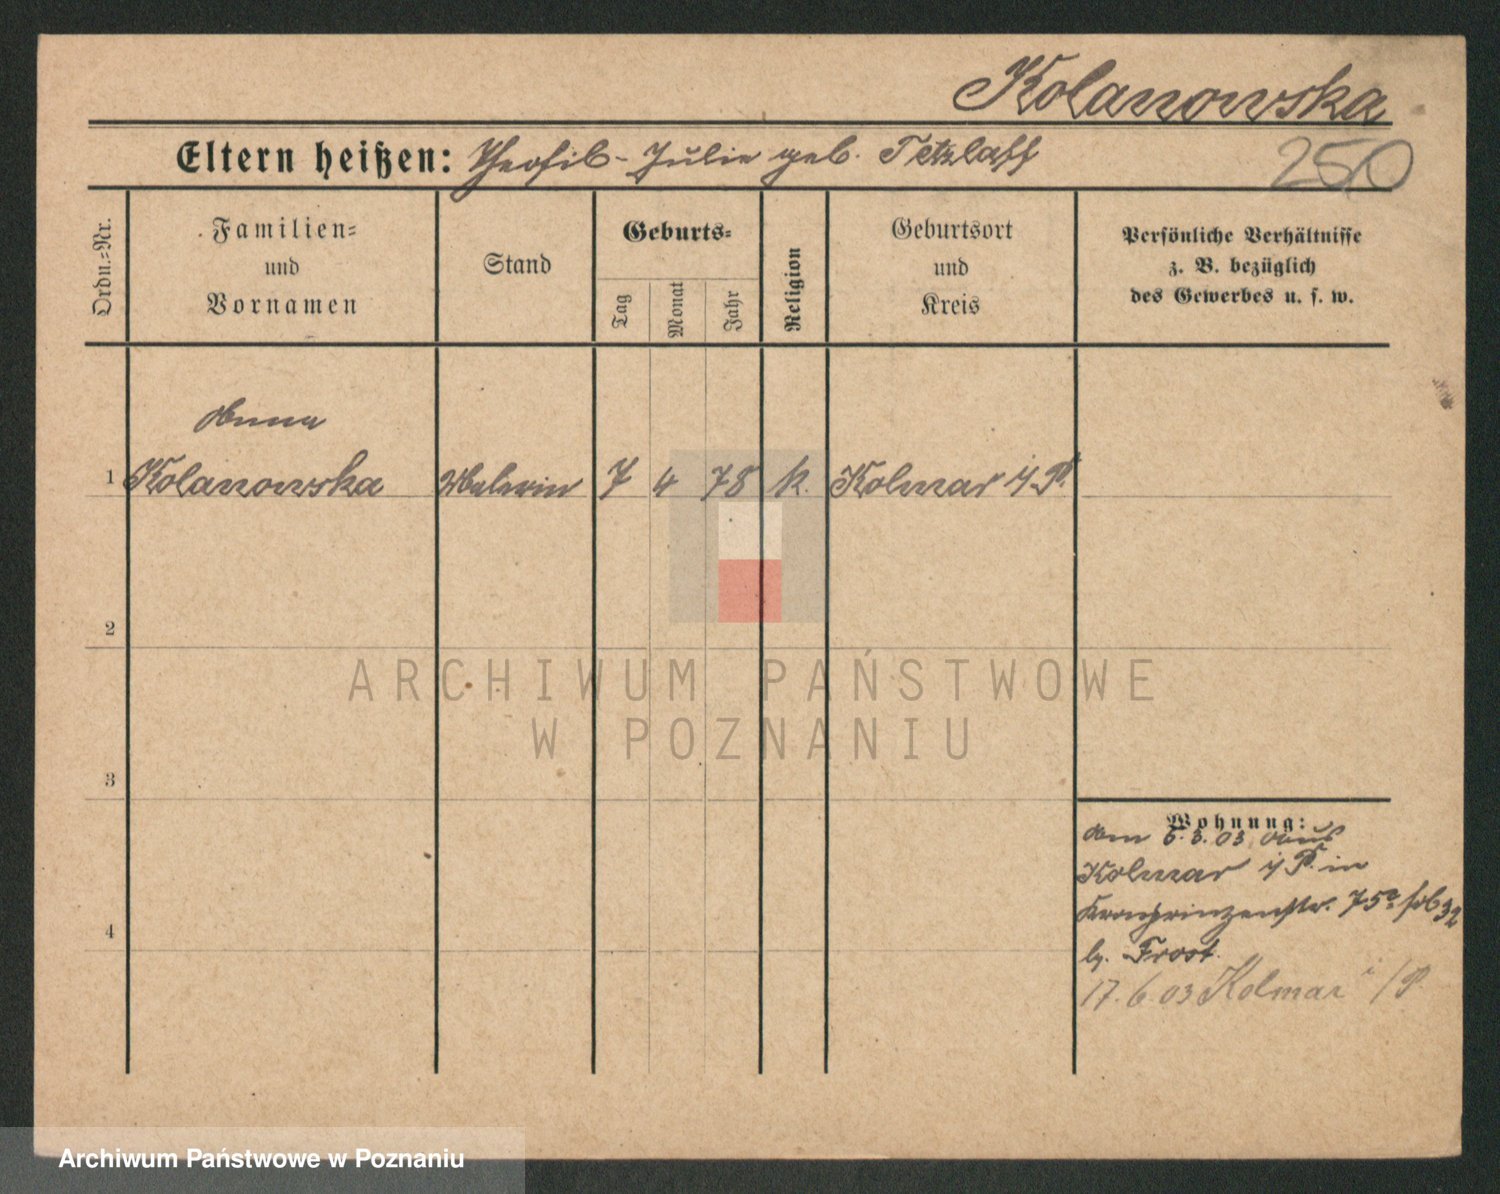 Kolanowska
Eltern heißen: Theofil - Julie geb. Tetzlaff
250
Ordn.-Nr.
Familien- und Vornamen
Stand
Geburts-
Tag
Monat
Jahr
Religion
Geburtsort und Kreis
Persönliche Verhältnisse
z. B. bezüglich
des Gewerbes u. s. w.
Anna
1 Kolanowska Malerin 7 4 78 k. Kolmar i/P.
2
ARCHIWUM PAŃSTWOWE
W POZNANIU
3
Wohnung:
am 6.3.03 aus
Kolmar i/P. in
Kronprinzenstr. 75a
4
b. Frost.
17.6.03 Kolmar i/P
Archiwum Państwowe w Poznaniu